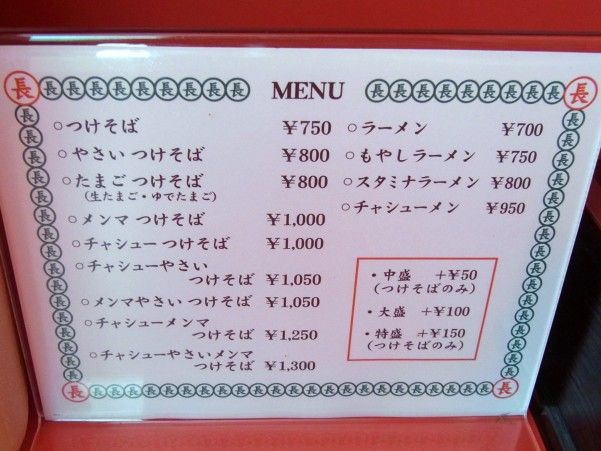 MENU
○つけそば ¥750
○やさい つけそば ¥800
○たまご つけそば ¥800
(生たまご・ゆでたまご)
○メンマ つけそば ¥1,000
○チャシュー つけそば ¥1,000
○チャシューやさい
つけそば ¥1,050
○メンマやさい つけそば ¥1,050
○チャシューメンマ
つけそば ¥1,250
○チャシューやさいメンマ
つけそば ¥1,300
○ラーメン ¥700
○もやしラーメン ¥750
○スタミナラーメン ¥800
○チャシューメン ¥950
・中盛 +¥50
(つけそばのみ)
・大盛 +¥100
・特盛 +¥150
(つけそばのみ)